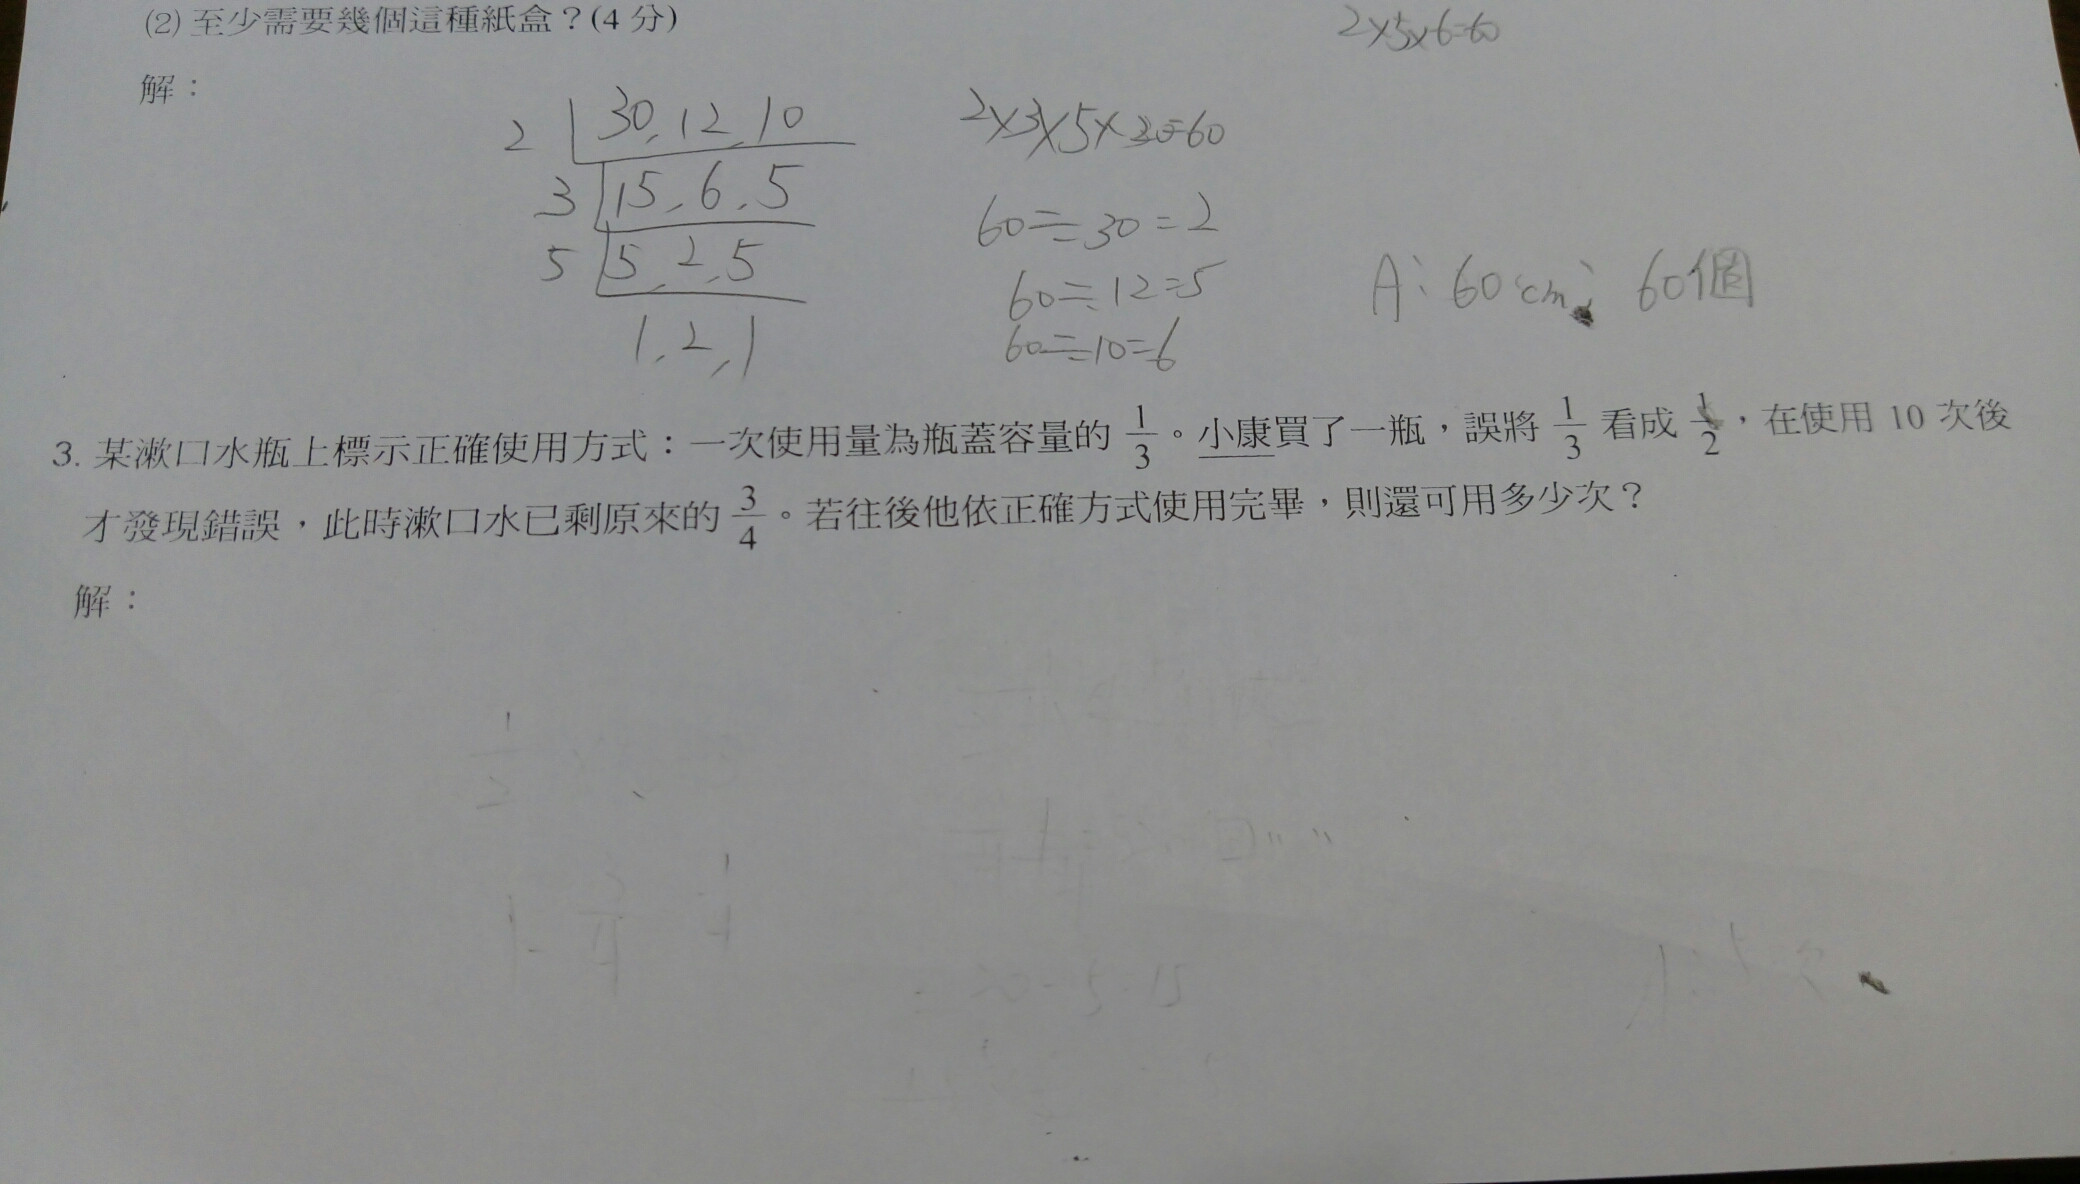 (2) 至少需要幾個這種紙盒？(4 分)
2×5×6=60
解：
2 30, 12, 10
3 15, 6, 5
5 5, 2, 5
1, 2, 1
60÷30=2
60÷12=5
60÷10=6
A：60cm；60個
3. 某漱口水瓶上標示正確使用方式：一次使用量為瓶蓋容量的 1/3。小康買了一瓶，誤將 1/3 看成 1/2，在使用 10 次後
才發現錯誤，此時漱口水已剩原來的 3/4。若往後他依正確方式使用完畢，則還可用多少次？
解：